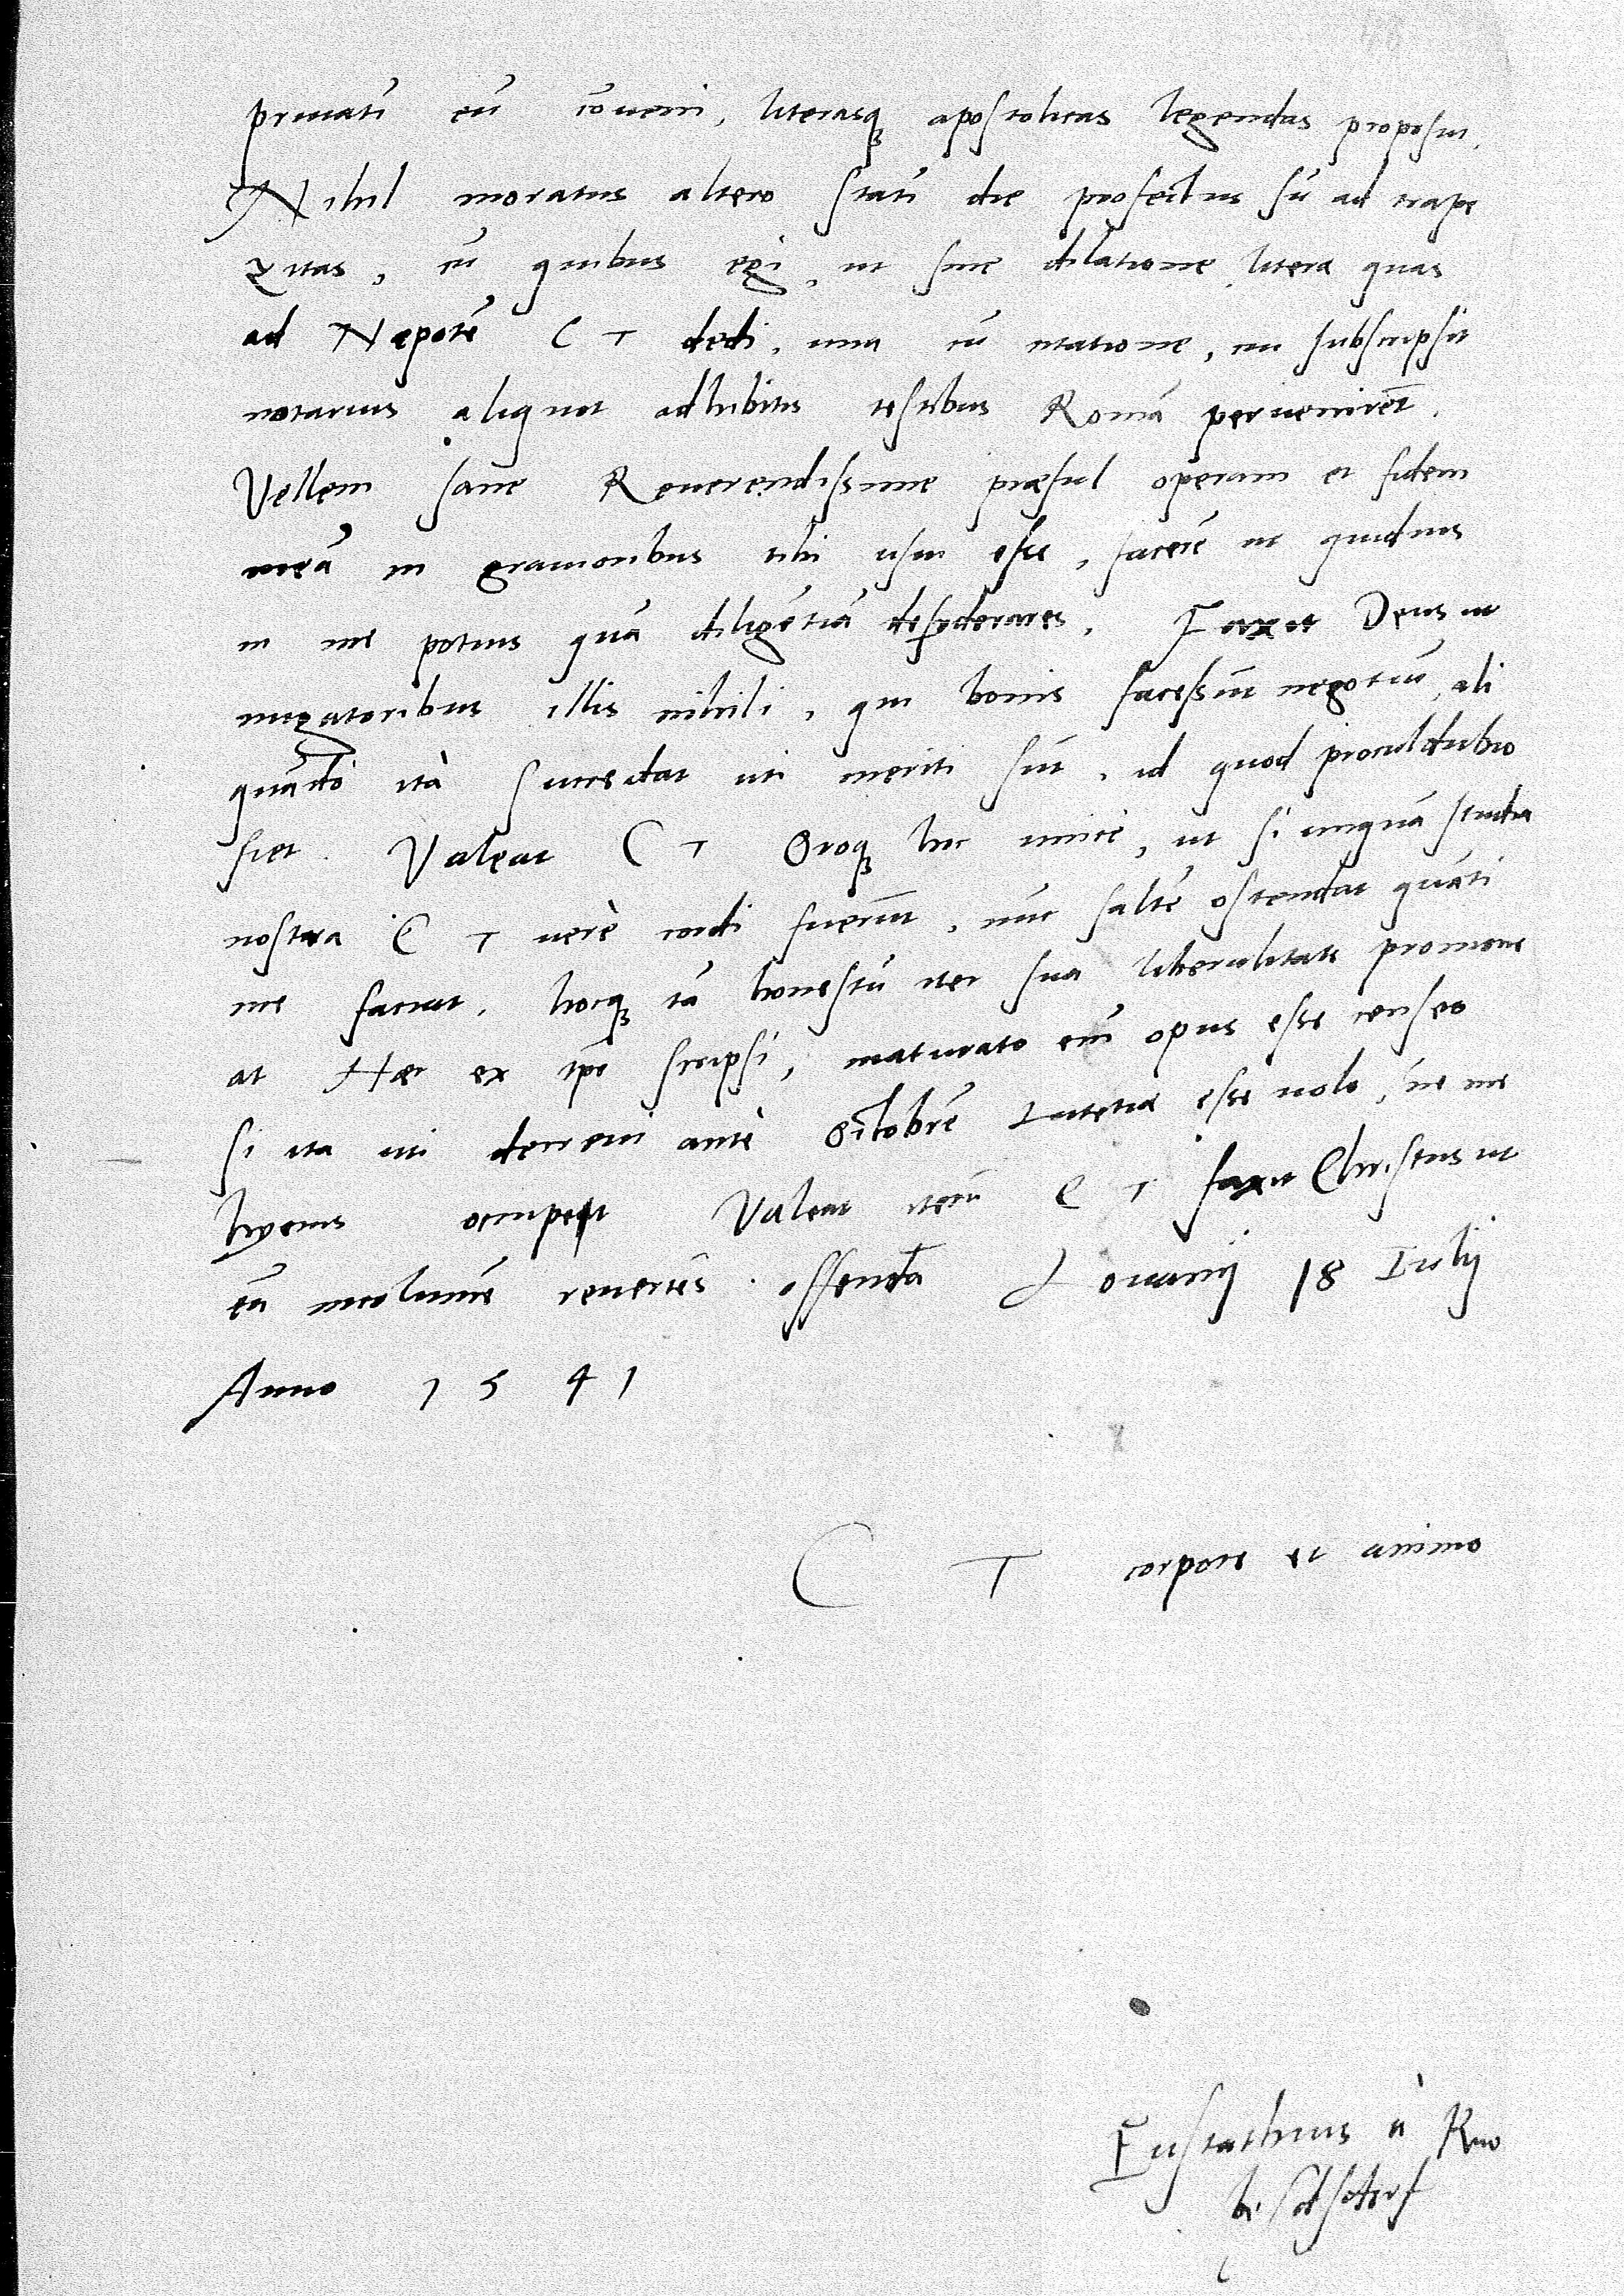 priuatī eū cōueni, literasq apostolicas legendas proposui.
Nihil moratus altero statī die profectus sū ad trape
zitas, cū quibus egi, ut sine dilatione literæ quas
ad Nepotē C T dedi, una cū citatione, cui subscripsit
notarius aliquot adhibitis testibus Romā peruenirēt.
Vellem sane Reuerendissime præsul operam et fidem
meā in grauioribus tibi usui esse, facerē ut quiduis
in me potius quā diligētiā desyderares. Faxit Deus ut
nugatoribus illis nihili, qui bonis facessūt negotiū, ali
quādo ità succedat uti meriti sūt, id quod proculdubio
fiet. Valeat C T Oroq hic unicè, ut si unquā studia
nostra C T uerè cordi fuerūt, nūc saltē ostendat quāti
me faciat, hocq tā honestū iter sua liberalitate promoue
at Hæc ex tpe scripsi, maturato eī opus esse censeo
si ita uti decreui antè Octobrē Lutetiæ esse uolo, ne me
hyems occupet Valeat iterū C T faxit Christus ut
eā incolumē reuertēs offendā Louanij 18 Iulij
Anno 1541
C T corpore et animo
Eustathius à Kno
belsdorf